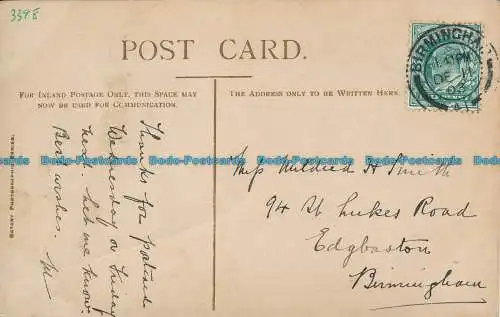 339E
POST CARD.
FOR INLAND POSTAGE ONLY, THIS SPACE MAY
NOW BE USED FOR COMMUNICATION.
THE ADDRESS ONLY TO BE WRITTEN HERE.
BIRMINGHAM
DE 11
ROTARY PHOTOGRAPHIC SERIES.
Thanks for postcard
Wednesday or Friday
next. Let me know.
Best wishes.
Miss Mildred H Smith
94 St Lukes Road
Edgbaston
Birmingham
Bodo-Postcards Bodo-Postcards Bodo-Postcards Bodo-Postcards